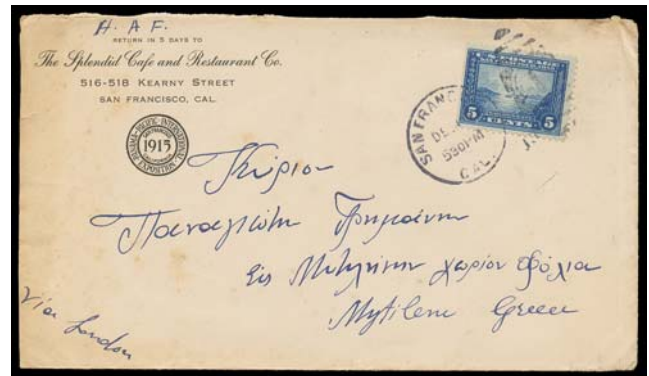 H. A F.
RETURN IN 5 DAYS TO
The Splendid Cafe and Restaurant Co.
516-518 KEARNY STREET
SAN FRANCISCO, CAL.
PANAMA-PACIFIC INTERNATIONAL EXPOSITION
SAN FRANCISCO
1915
U.S. POSTAGE
5 CENTS 5
SAN FRANC
DE
530 PM
CAL.
Κύριον
Παναγιώτην
εις Μυτιλήνην χωρίον
Mytilene Greece
Via London